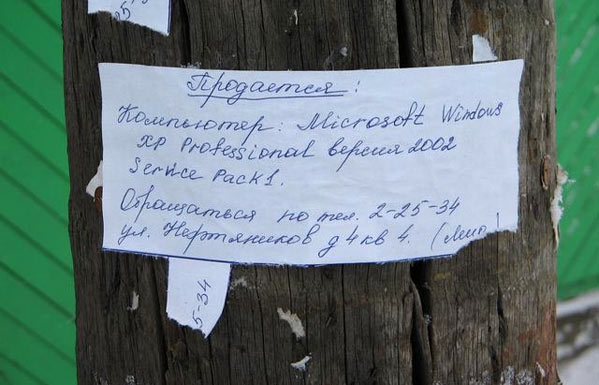 5-3
Продается:
Компьютер: Microsoft Windows
XP Professional версия 2002
Service Pack 1.
Обращаться по тел. 2-25-34
ул. Нефтяников д 4 кв 4.
5-34